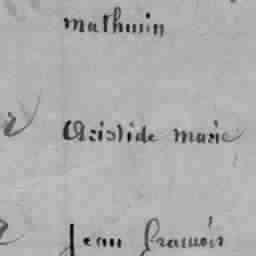 mathurin
Aristide marie
Jean francois